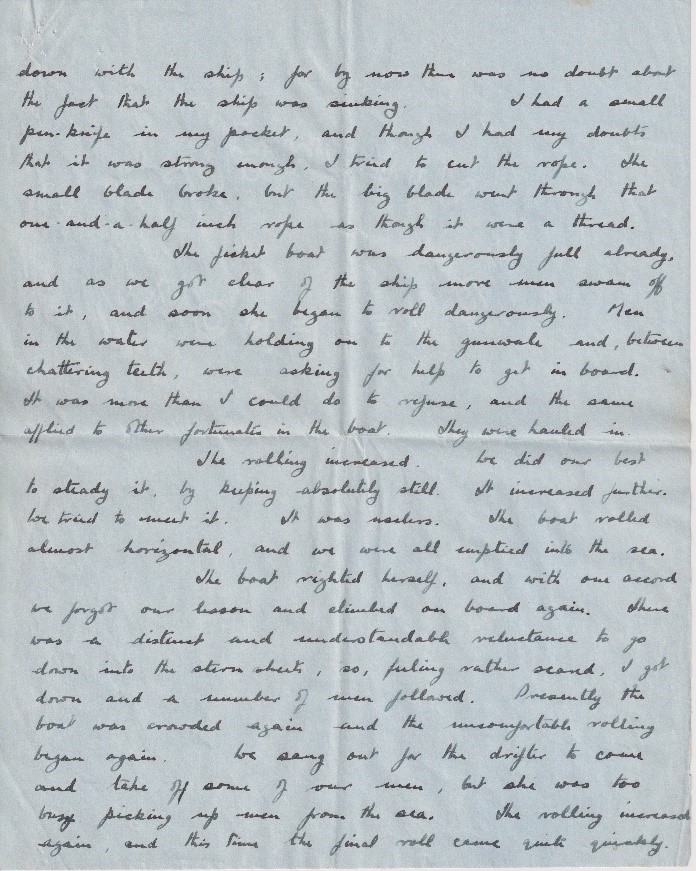 down with the ship; for by now there was no doubt about
the fact that the ship was sinking. I had a small
pen-knife in my pocket, and though I had my doubts
that it was strong enough, I tried to cut the rope. The
small blade broke, but the big blade went through that
one-and-a-half inch rope as though it were a thread.
The picket boat was dangerously full already,
and as we got clear of the ship more men swam off
to it, and soon she began to roll dangerously. Men
in the water were holding on to the gunwale and, between
chattering teeth, were asking for help to get in board.
It was more than I could do to refuse, and the same
applied to other fortunates in the boat. They were hauled in.
The rolling increased. We did our best
to steady it, by keeping absolutely still. It increased further.
We tried to meet it. It was useless. The boat rolled
almost horizontal, and we were all emptied into the sea.
The boat righted herself, and with one accord
we forgot our lesson and climbed on board again. There
was a distinct and understandable reluctance to go
down into the stern sheets, so, feeling rather scared, I got
down and a number of men followed. Presently the
boat was crowded again and the uncomfortable rolling
began again. We sang out for the drifter to come
and take off some of our men, but she was too
busy picking up men from the sea. The rolling increased
again, and this time the final roll came quite quickly.